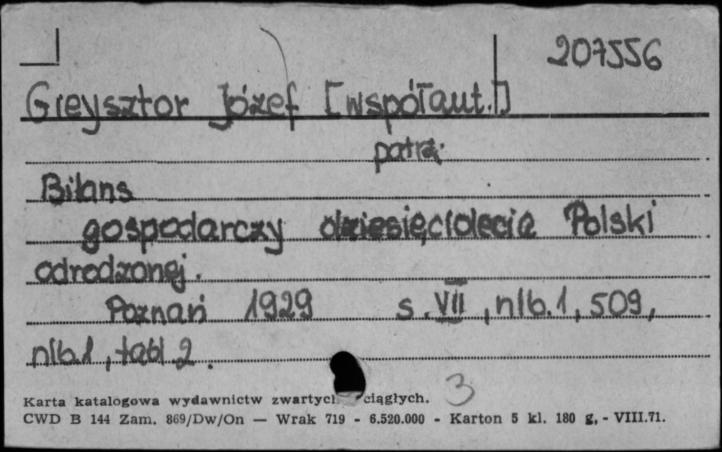 207556
Gieysztor Józef [współaut.]
patrz:
Bilans
gospodarczy dziesięciolecia Polski
odrodzonej.
Poznań 1929 s. VII, nlb. 1, 509,
nlb. 1, tabl 2.
3
Karta katalogowa wydawnictw zwartych ciągłych.
CWD B 144 Zam. 869/Dw/On — Wrak 719 - 6.520.000 - Karton 5 kl. 180 g, - VIII.71.